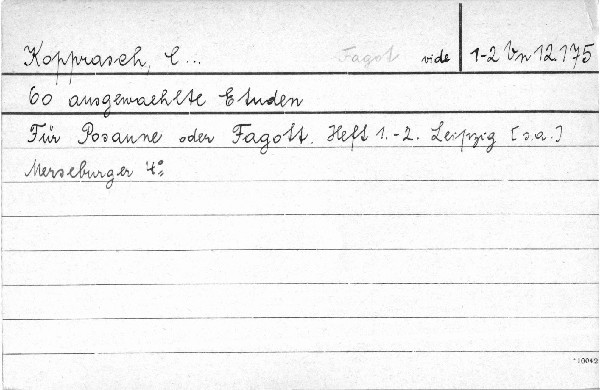 Kopprasch, C... Fagot vide 1-2 Vn 12.175
60 ausgewaehlte Etuden
Für Posaune oder Fagott. Heft 1.-2. Leipzig [s.a.]
Merseburger 4°
10042